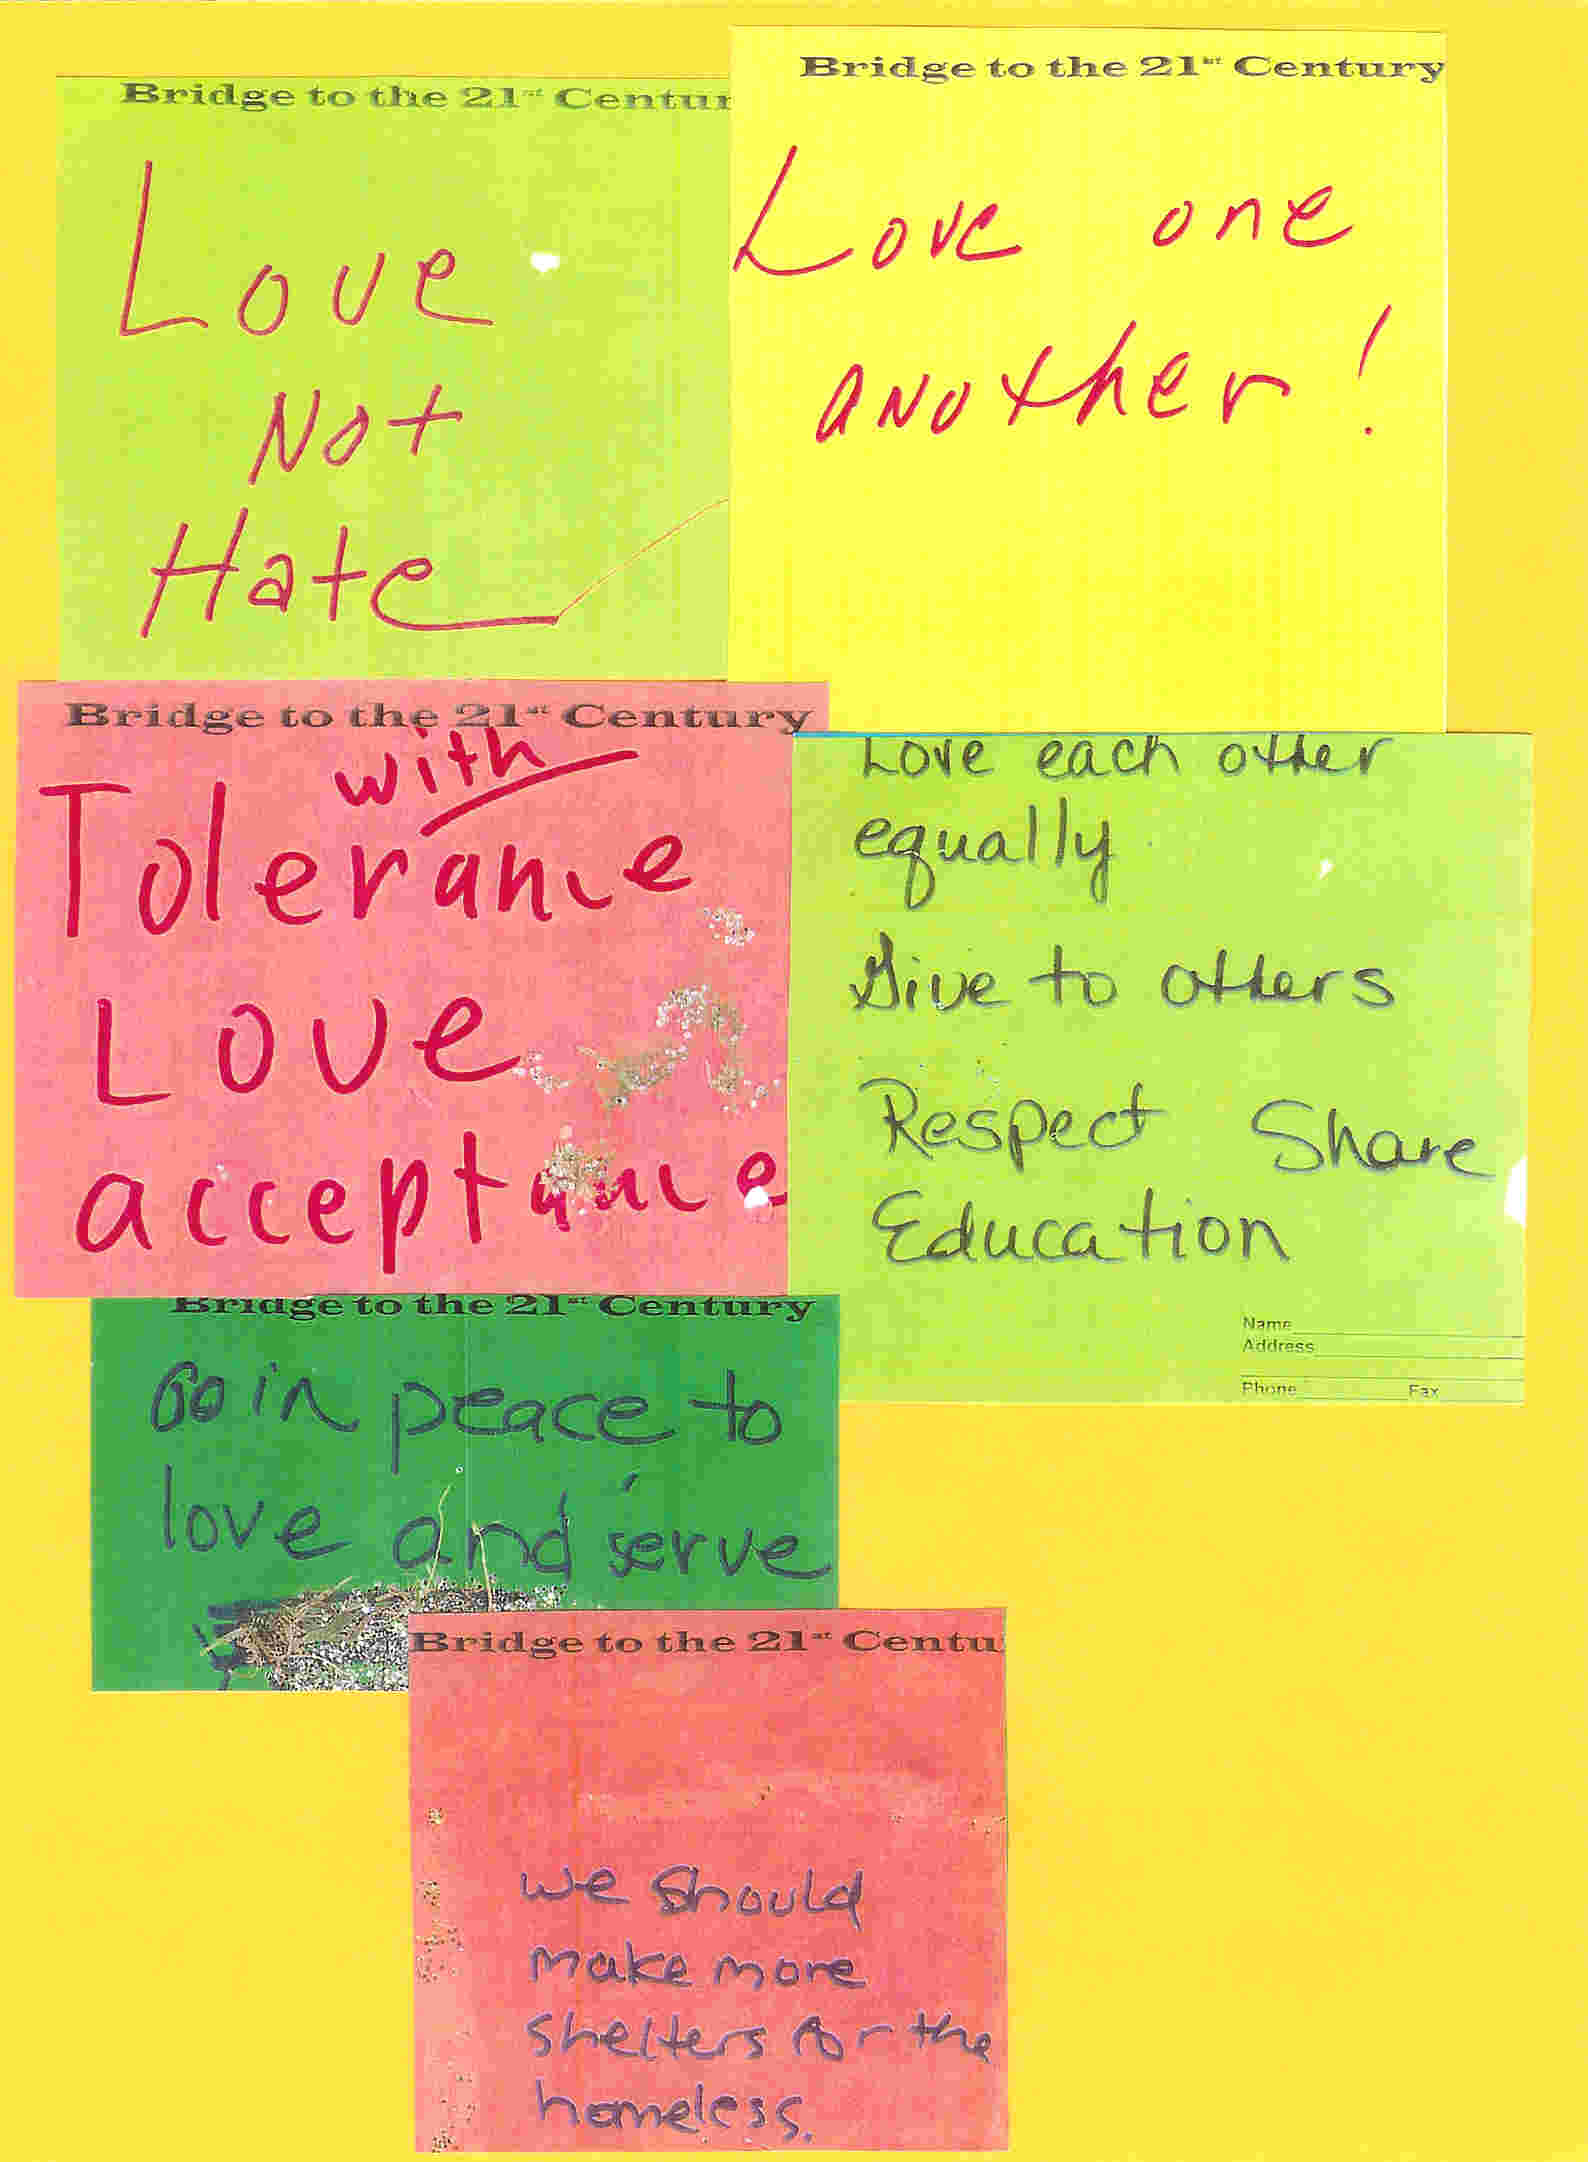 Bridge to the 21st Centur
Love
Not
Hate
Bridge to the 21st Century
Love one
another!
Bridge to the 21st Century
with
Tolerance
Love
acceptance
Love each other
equally
Give to others
Respect Share
Education
Name
Address
Phone Fax
Bridge to the 21st Century
Go in peace to
love and serve
Bridge to the 21st Centu
we should
make more
shelters for the
homeless.